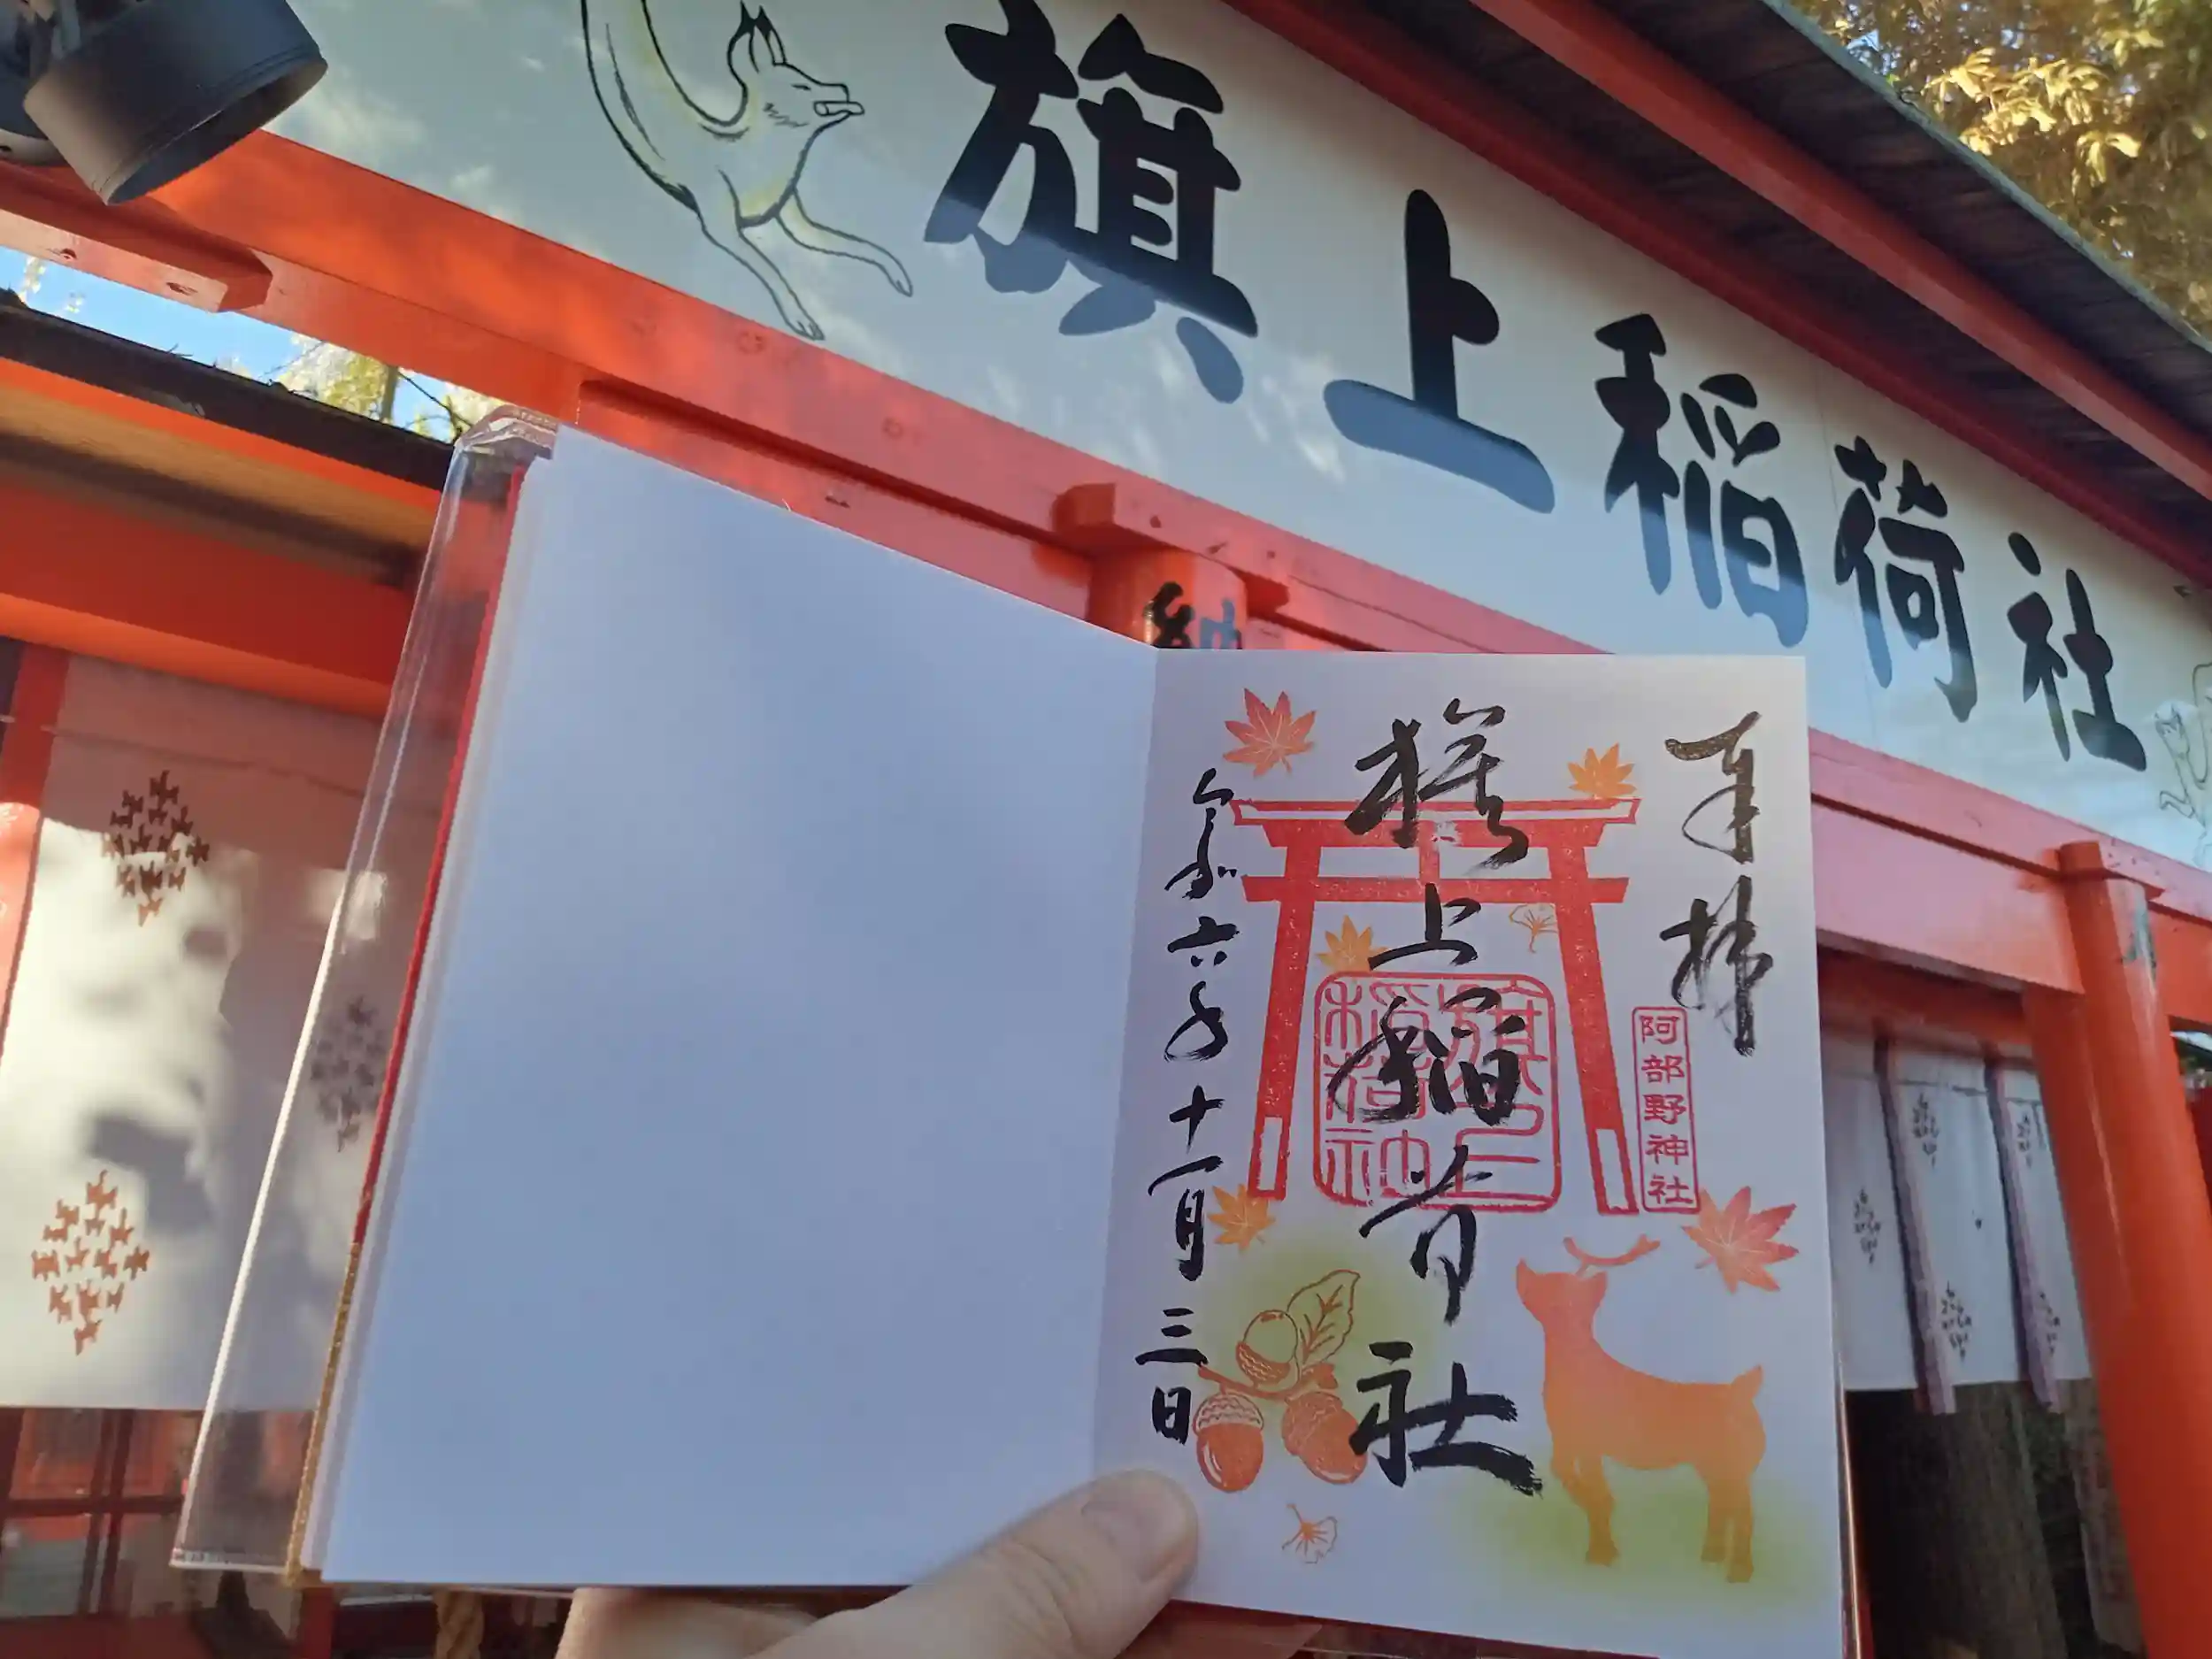 旗上稲荷社
奉拝
阿部野神社
旗上稲荷社
旗上稲荷社
令和六年十一月三日